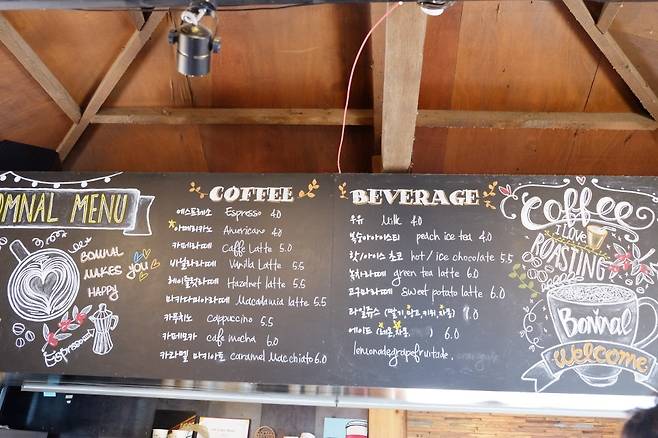 OMNAL MENU
BOMNAL
MAKES YOU
HAPPY
Espresso
COFFEE
에스프레소 Espresso 4.0
아메리카노 Americano 4.0
카페라떼 Caffe Latte 5.0
바닐라라떼 Vanilla Latte 5.5
헤이즐넛라떼 Hazelnut latte 5.5
마카다미아라떼 Macadamia latte 5.5
카푸치노 cappuccino 5.5
카페모카 cafe mocha 6.0
카라멜 마끼아또 caramel Macchiato 6.0
BEVERAGE
우유 Milk 4.0
복숭아아이스티 peach ice tea 4.0
핫/아이스 초코 hot / ice chocolate 5.5
녹차라떼 green tea latte 6.0
고구마라떼 sweet potato latte 6.0
과일쥬스 (딸기, 망고, 키위, 자몽) 7.0
에이드 (레몬, 자몽 ) 6.0
lemonade grapefruitade.
Coffee
I LOVE
ROASTING
Bomnal
WELCOME